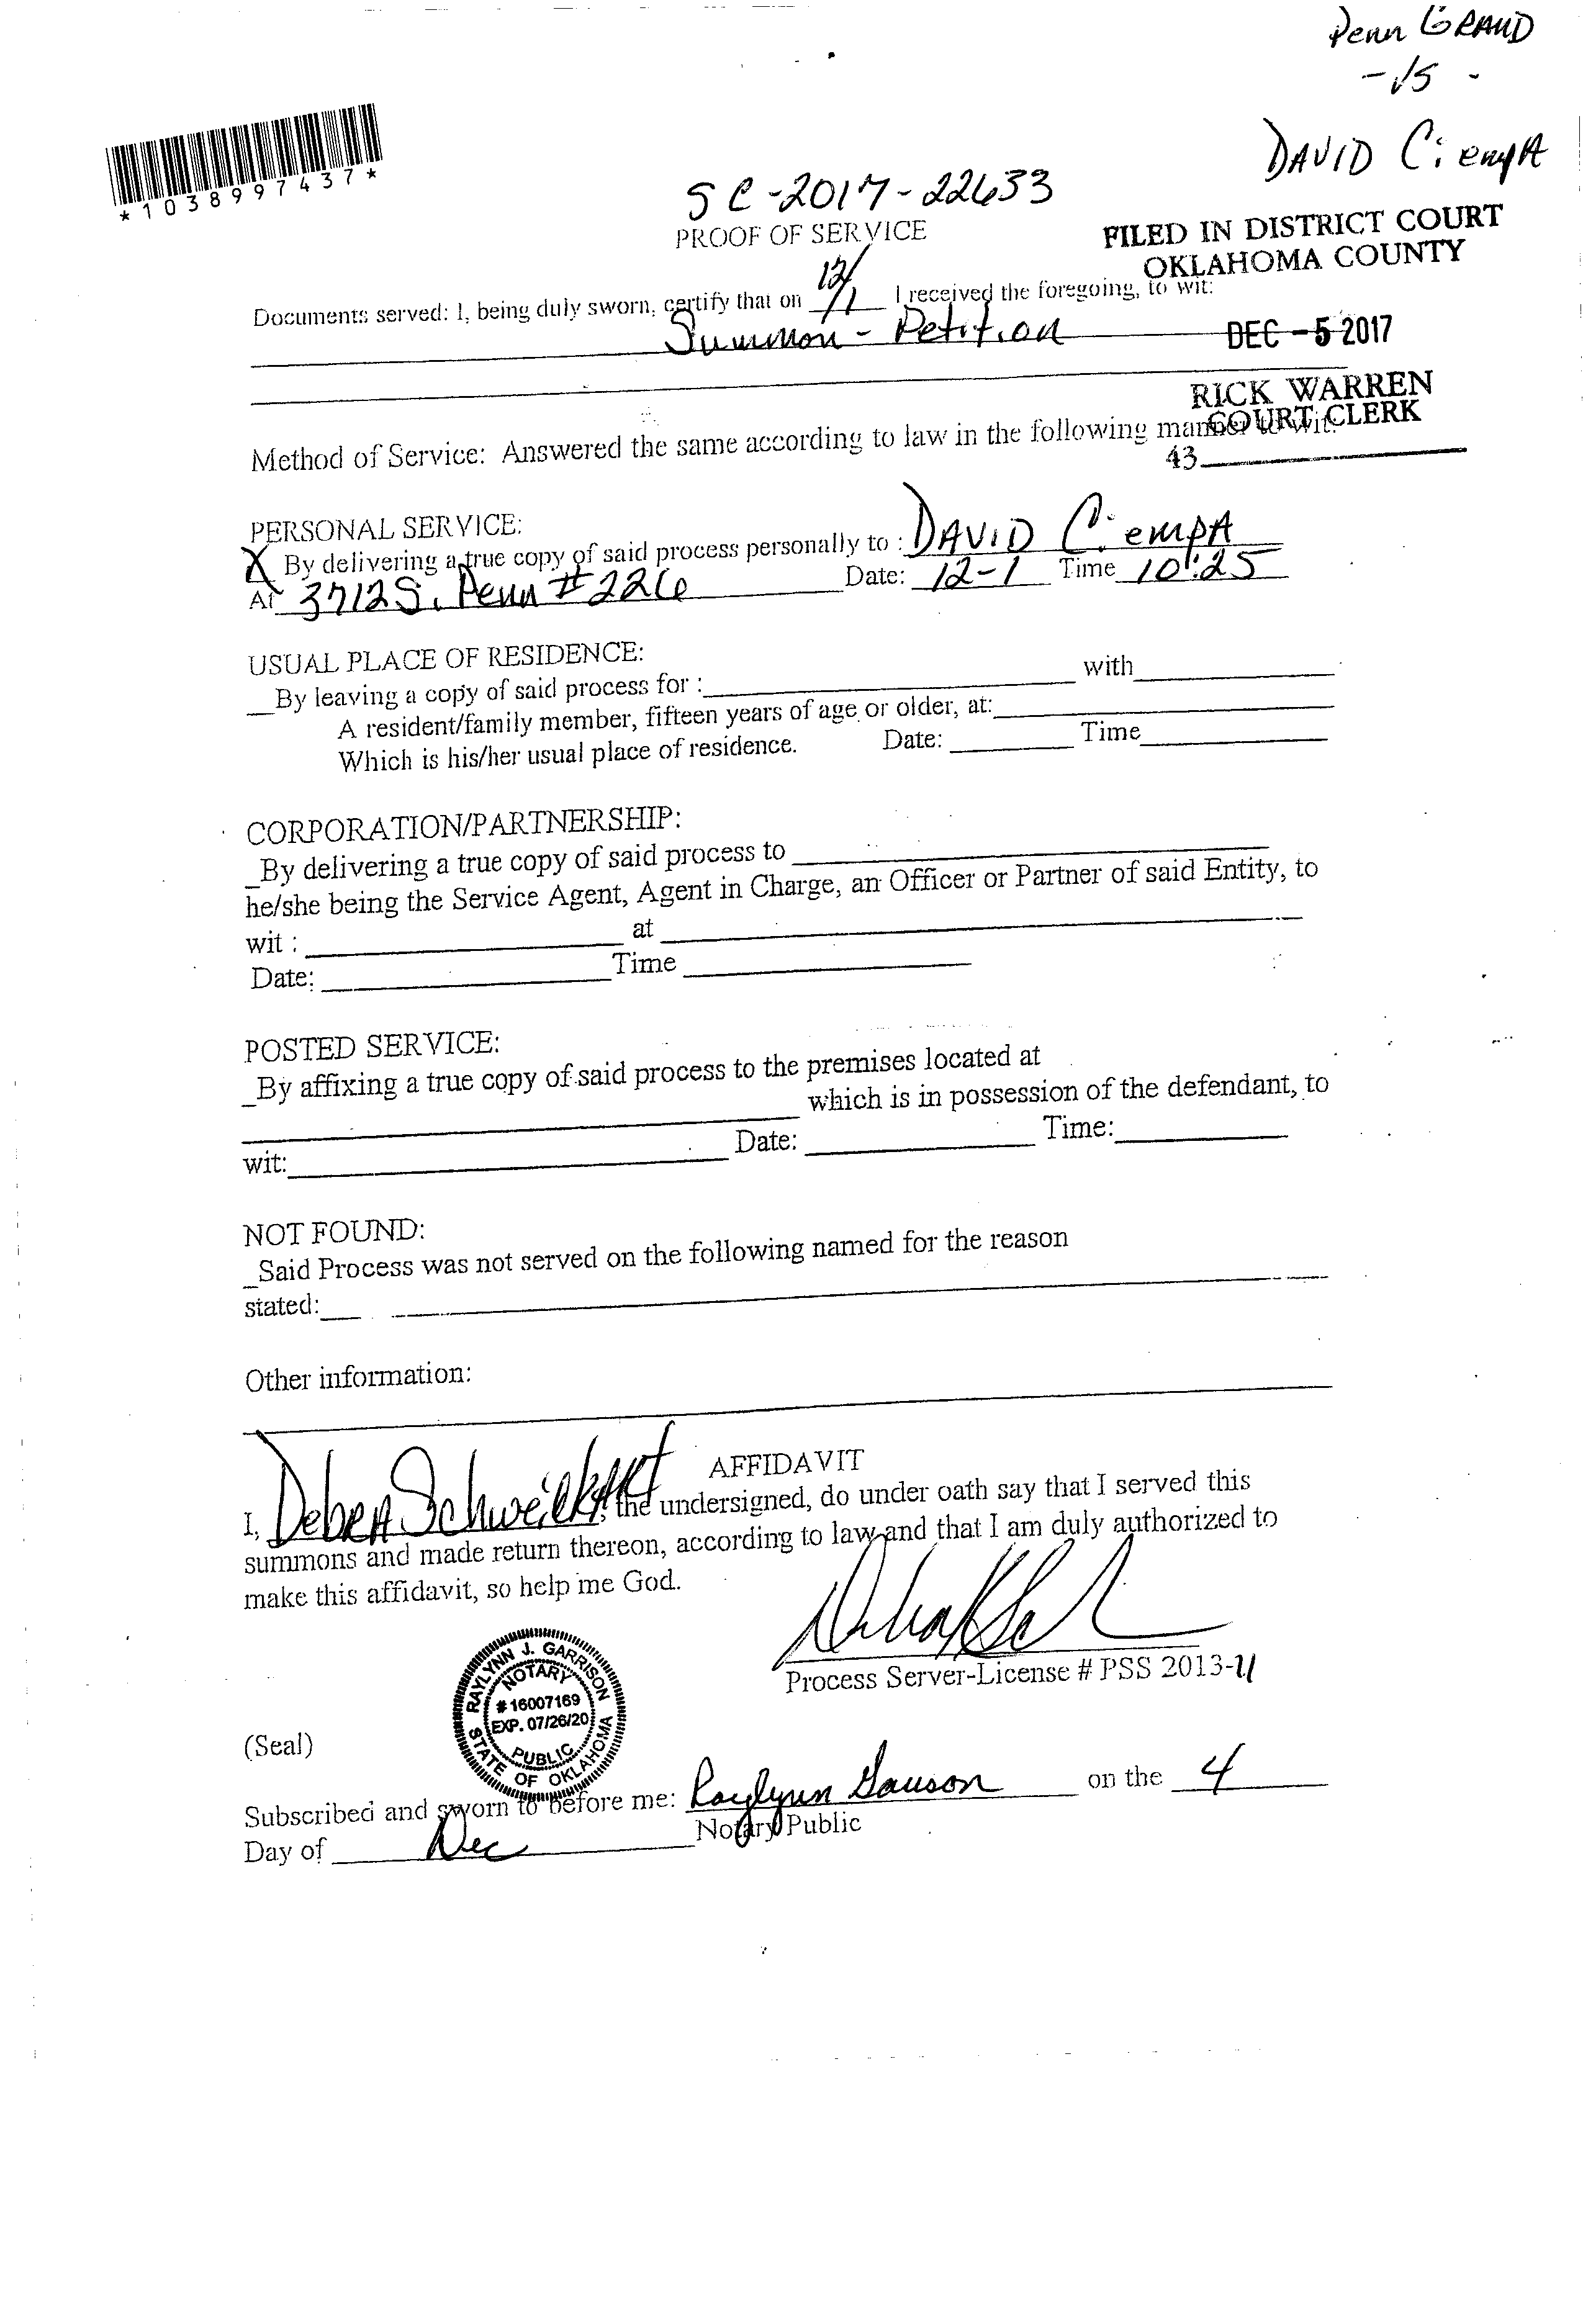 Penn GRAND
- vs -
DAVID CiempA
*1038997437*
SC-2017-22633
PROOF OF SERVICE
FILED IN DISTRICT COURT
OKLAHOMA COUNTY
Documents served: I, being duly sworn, certify that on 12/1 I received the foregoing, to wit:
Summon - Petition
DEC - 5 2017
RICK WARREN
COURT CLERK
Method of Service: Answered the same according to law in the following manner to wit:
43
PERSONAL SERVICE:
X By delivering a true copy of said process personally to : DAVID CiempA
At 3712 S. Penn #226 Date: 12-1 Time 10:25
USUAL PLACE OF RESIDENCE:
_By leaving a copy of said process for : with
A resident/family member, fifteen years of age or older, at:
Which is his/her usual place of residence. Date: Time
CORPORATION/PARTNERSHIP:
_By delivering a true copy of said process to
he/she being the Service Agent, Agent in Charge, an Officer or Partner of said Entity, to
wit : at
Date: Time
POSTED SERVICE:
_By affixing a true copy of said process to the premises located at
which is in possession of the defendant, to
wit: Date: Time:
NOT FOUND:
_Said Process was not served on the following named for the reason
stated:
Other information:
AFFIDAVIT
I, DebRA Schweikart, the undersigned, do under oath say that I served this
summons and made return thereon, according to law and that I am duly authorized to
make this affidavit, so help me God.
Process Server-License # PSS 2013-11
RAYLYNN J. GARRISON
NOTARY
# 16007169
EXP. 07/26/20
PUBLIC
STATE OF OKLAHOMA
(Seal)
Subscribed and sworn to before me: Raylynn Garrison on the 4
Notary Public
Day of Dec